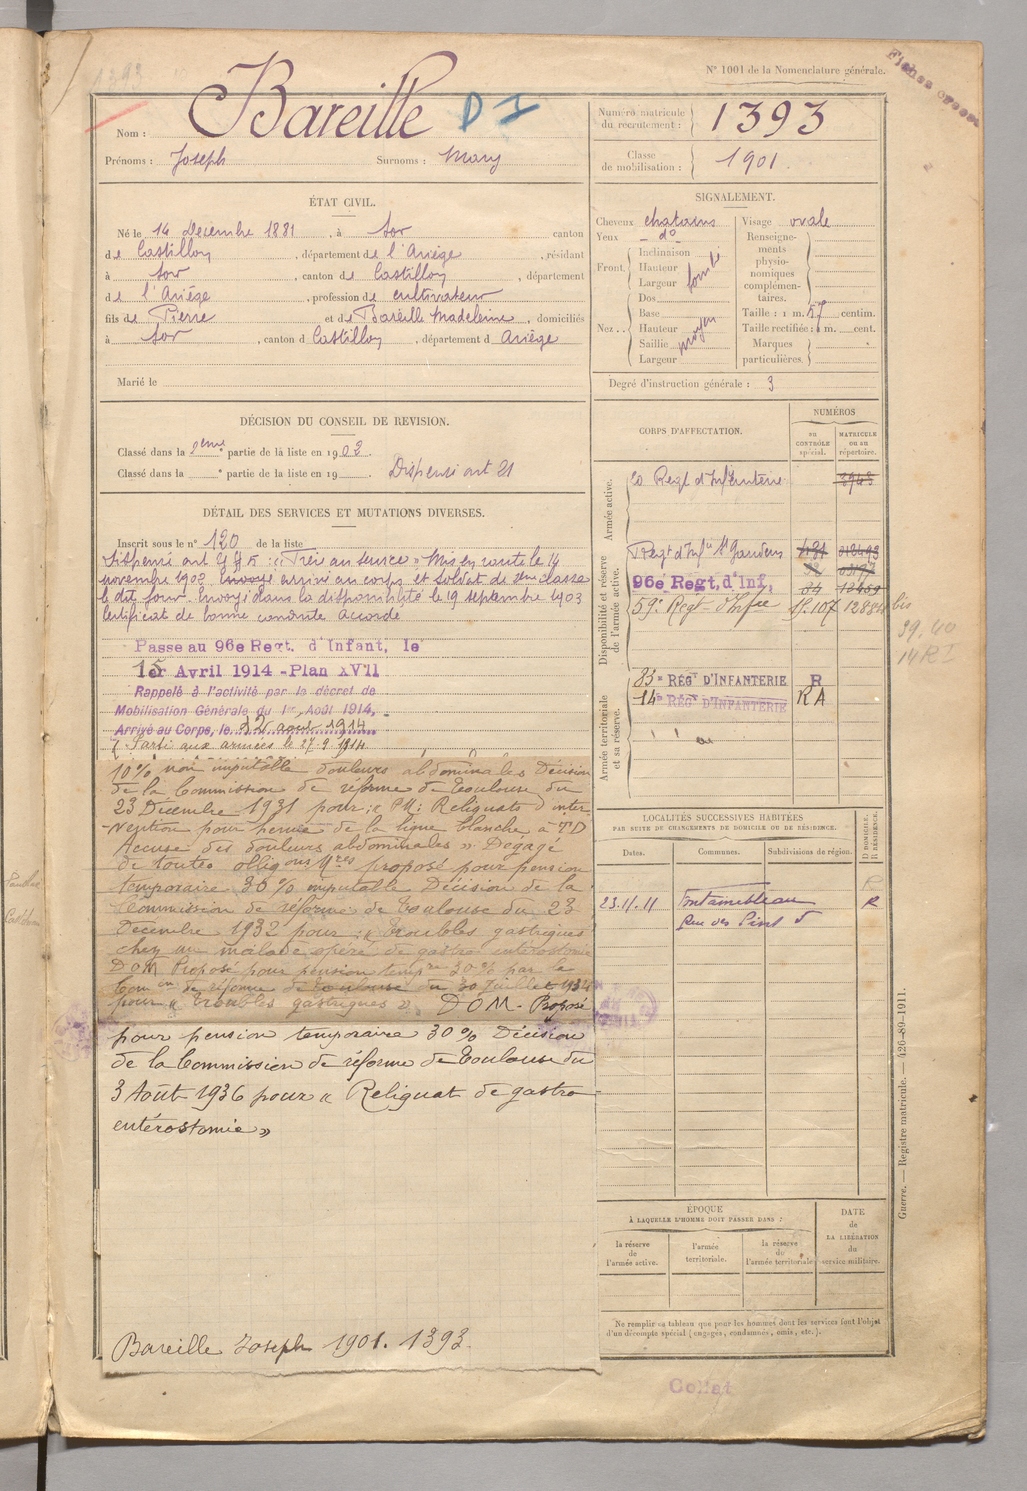 1393
N° 1001 de la Nomenclature générale.
Nom : Bareille D I
Prénoms : Joseph Surnoms : Mary
ÉTAT CIVIL.
Né le 14 Decembre 1881, à Sor canton
de Castillon, département de l'Ariège, résidant
à Sor, canton de Castillon, département
de l'Ariège, profession de cultivateur
fils de Pierre et de Bareille Madeleine, domiciliés
à Sor, canton d Castillon, département d Ariège
Marié le
DÉCISION DU CONSEIL DE REVISION.
Classé dans la 2eme partie de la liste en 1902.
Classé dans la ° partie de la liste en 19 Dispensé art 21
DÉTAIL DES SERVICES ET MUTATIONS DIVERSES.
Inscrit sous le n° 120 de la liste
Dispensé art 21 : « Frère au service » Mis en route le 14
novembre 1902 arrivé au corps et soldat de 2eme classe
le dit jour. Envoyé dans la disponibilité le 19 septembre 1903
Certificat de bonne conduite Accordé
Passe au 96e Regt. d'Infant, le
1er Avril 1914 - Plan XVII
Rappelé à l'activité par le décret de
Mobilisation Générale du 1er Août 1914,
Arrivé au Corps, le 12 août 1914
Parti aux armées le 27.9.1914
10% non imputable douleurs abdominales Décision
de la Commission de réforme de Toulouse du
23 Décembre 1931 pour : « PM : Reliquats d'inter-
-vention pour hernie de la ligne blanche à TD
Accuse des douleurs abdominales » Dégagé
de toutes oblig ons Mres proposé pour pension
temporaire 30% imputable Décision de la
Commission de réforme de Toulouse du 23
Décembre 1932 pour : « Troubles gastriques
chez un malade opéré de gastro entérostomie
DOM Proposé pour pension tempre 30% par la
Com on de réforme de Toulouse du 30 Juillet 1934
pour « Troubles gastriques ». DOM - Proposé
pour pension temporaire 30% Décision
de la Commission de réforme de Toulouse du
3 Août 1936 pour « Reliquat de gastro-
entérostomie »
Bareille Joseph 1901. 1393
Numéro matricule du recrutement : 1393
Classe de mobilisation : 1901.
SIGNALEMENT.
Cheveux chatains
Yeux - do -
Front. Inclinaison
Hauteur
Largeur
Nez. Dos
Base
Hauteur moyen
Saillie
Largeur
Visage ovale
Renseigne-
ments
physio-
nomiques
complémen-
taires.
Taille : 1 m. 57 centim.
Taille rectifiée : 1 m. cent.
Marques
particulières.
Degré d'instruction générale : 3
CORPS D'AFFECTATION.
NUMÉROS
AU CONTRÔLE spécial.
MATRICULE OU AU répertoire.
Armée active.
20 Regt d'Infanterie 3943
Disponibilité et réserve de l'armée active.
Regt d'Infie St Gaudens
96e Regt, d'Inf,
59e Regt d'Infie 12884 bis
39.40
14 RI
Armée territoriale et sa réserve.
83e RÉGt D'INFANTERIE R
14e RÉGt D'INFANTERIE RA
LOCALITÉS SUCCESSIVES HABITÉES
PAR SUITE DE CHANGEMENTS DE DOMICILE OU DE RÉSIDENCE.
Dates. Communes. Subdivisions de région. D DOMICILE. R RÉSIDENCE.
23.11.11 Fontainebleau R
Rue des Pins 5
ÉPOQUE
À LAQUELLE L'HOMME DOIT PASSER DANS :
la réserve de l'armée active.
l'armée territoriale.
la réserve de l'armée territoriale
DATE
de
LA LIBÉRATION
du
service militaire.
Ne remplir ce tableau que pour les hommes dont les services font l'objet
d'un décompte spécial (engagés, condamnés, omis, etc.).
Guerre. — Registre matricule. — 426-89-1911.